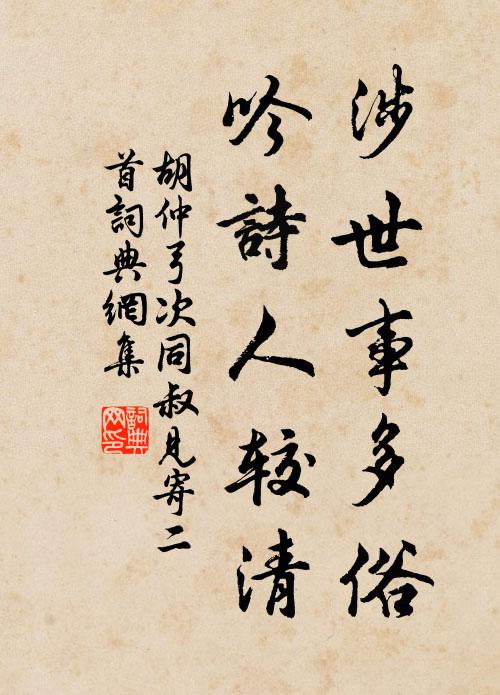 涉世事多俗
吟詩人较清
胡仲弓次同叔見寄二
首詞典網集
詞典
网印